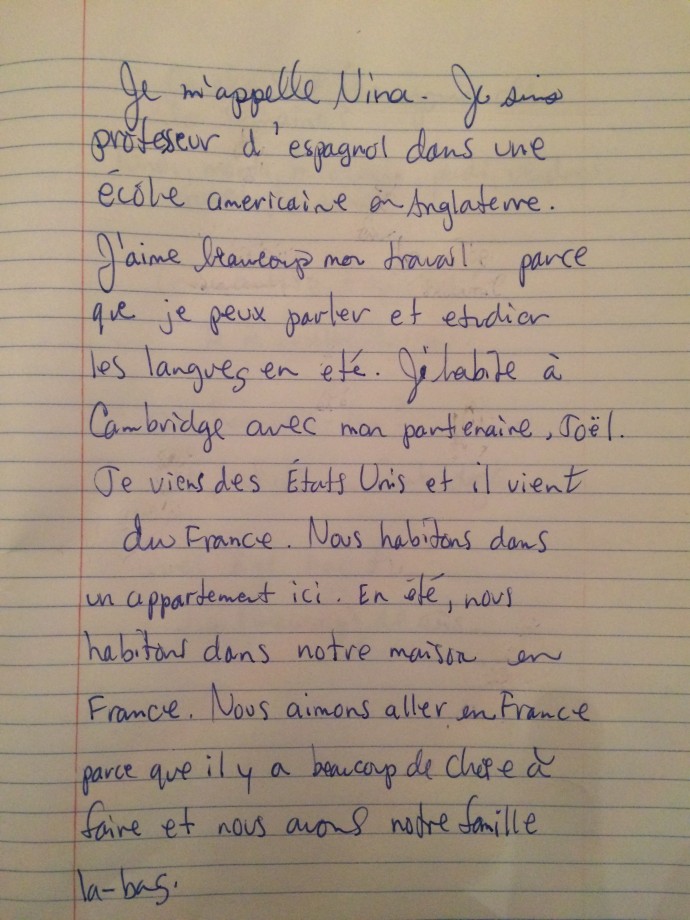 Je m'appelle Nina. Je suis
professeur d'espagnol dans une
école americaine en Angleterre.
J'aime beaucoup mon travail parce
que je peux parler et etudier
les langues en eté. J'habite à
Cambridge avec mon partenaire, Joël.
Je viens des États Unis et il vient
du France. Nous habitons dans
un appartement ici. En été, nous
habitons dans notre maison en
France. Nous aimons aller en France
parce que il y a beaucoup de chose à
faire et nous avons notre famille
la-bas.